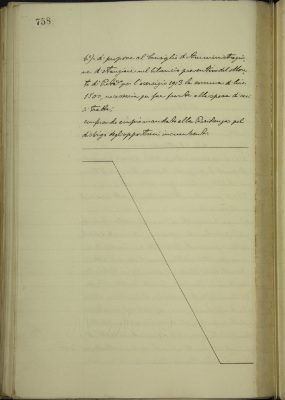 758
6°/. di proporre al Consiglio di Amministrazio-
ne di stanziare nel bilancio preventivo del Mon-
te di Pietà per l'esercizio 1903 la somma di Lire
1500, necessaria per far fronte alla spesa di cui
si tratta;
comprando mandato alla Presidenza pel
disbrigo degli opportuni incombenti.